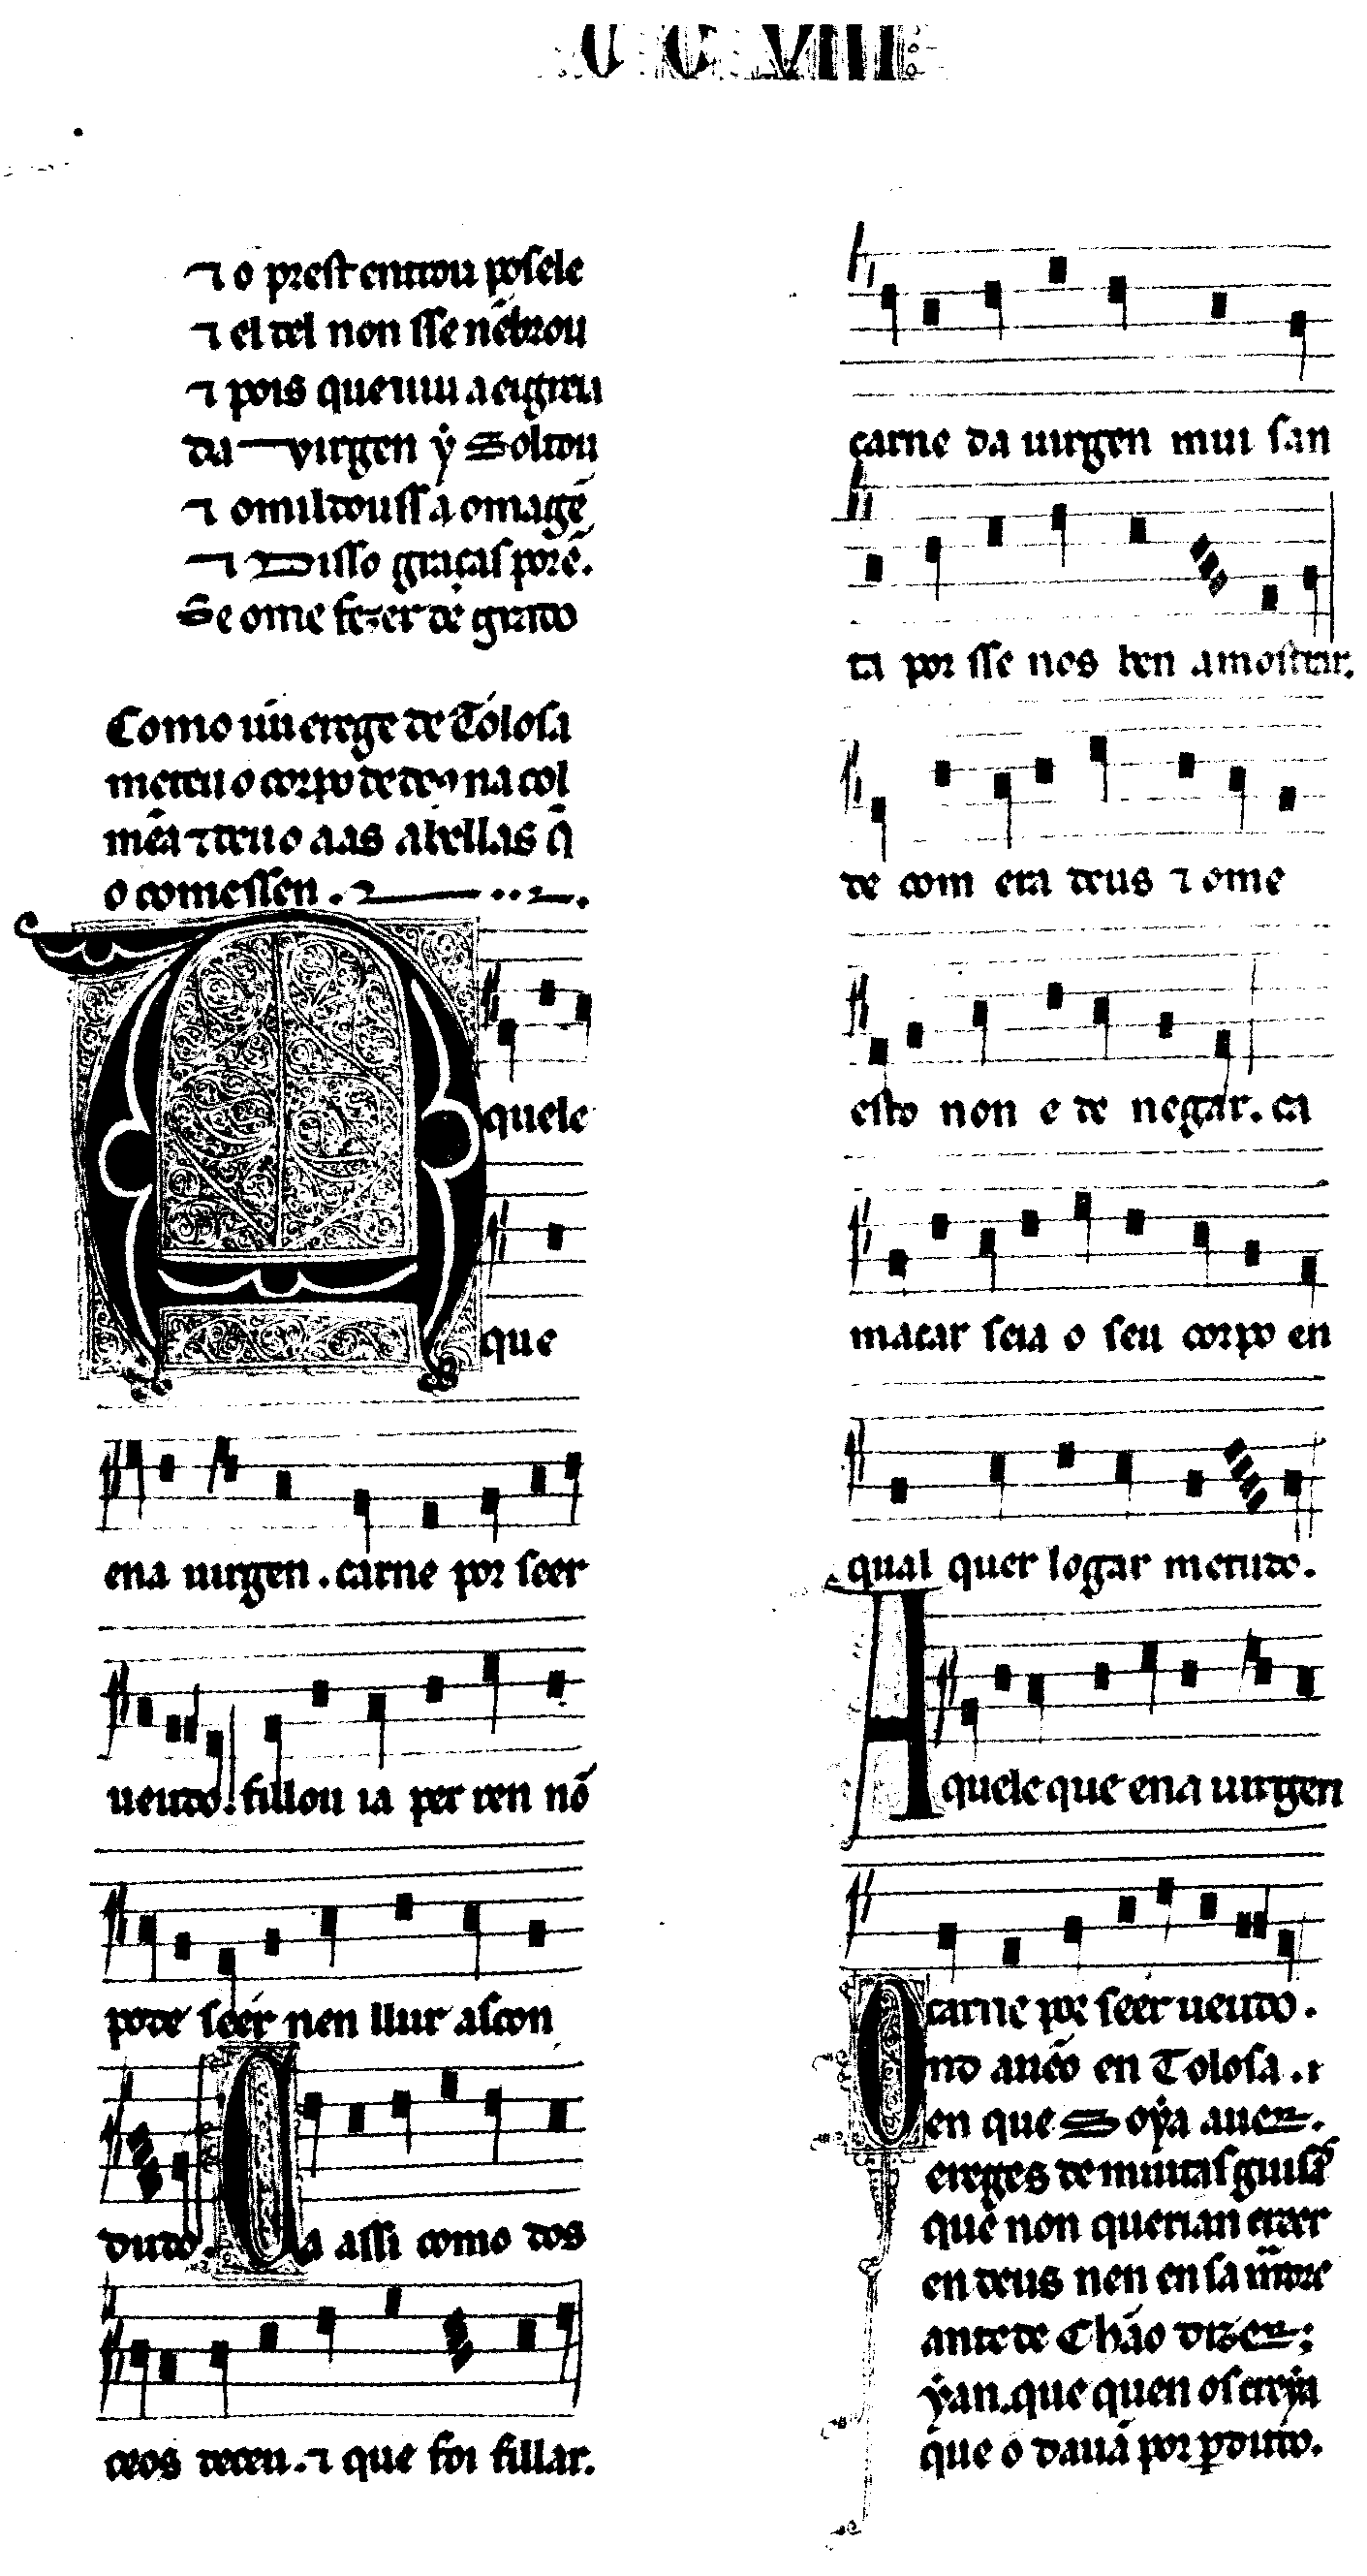 C C VIII
⁊ o prest entrou pos ele
⁊ el tel non sse nẽbrou
⁊ pois que uiu a eigreia
da virgen ẏ Soltou
⁊ omildouss á omagẽ
⁊ Disso graças porẽ.
Se ome fezer de grado
Como ũu erege de Tólosa
meteu o corpo de deos na col
mẽa ⁊ deu o aas abellas q̃
o comessen.
Aquele
que
ena uirgen. carne por seer
ueudo. fillou ia per ren nõ
pode seer nen llur ascon
dudo. Ca assi como dos
ceos deceu. ⁊ que foi fillar.
carne da uirgen mui san
ta por sse nos ben amostrar.
de com era deus ⁊ ome
esto non e de negar. ca
macar seia o seu corpo en
qual quer logar metudo.
Aquele que ena uirgen
carne por seer ueudo.
Ond auẽo en Tolosa. ⁊
en que Soẏa auer.
ereges de muitas guisas
que non querian creer
en deus nen en sa madre
ante de Chão dizer;
ẏan. que quen os creẏa
que o dauã por perdudo.